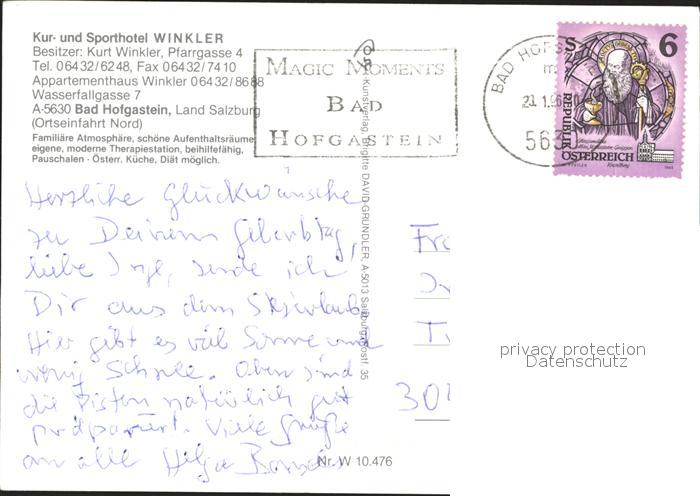 Kur- und Sporthotel WINKLER
Besitzer: Kurt Winkler, Pfarrgasse 4
Tel. 06432/6248, Fax 06432/7410
Appartementhaus Winkler 06432/8688
Wasserfallgasse 7
A-5630 Bad Hofgastein, Land Salzburg
(Ortseinfahrt Nord)
Familiäre Atmosphäre, schöne Aufenthaltsräume,
eigene, moderne Therapiestation, beihilfefähig,
Pauschalen · Österr. Küche, Diät möglich.
MAGIC MOMENTS
BAD
HOFGASTEIN
BAD HOFG
5630
S 6
REPUBLIK
ÖSTERREICH
Kunstverlag Brigitte DAVID-GRÜNDLER, A-5013 Salzburg, Postf. 35
Herzliche Glückwünsche
zu Deinem Geburtstag,
liebe Inge, sende ich
Dir aus dem Skiurlaub.
Hier gibt es viel Sonne und
wenig Schnee. Aber sind
die Pisten natürlich gut
präpariert. Viele Grüße
an alle Helga
Fr
In
T
30
privacy protection
Datenschutz
Nr. W 10.476